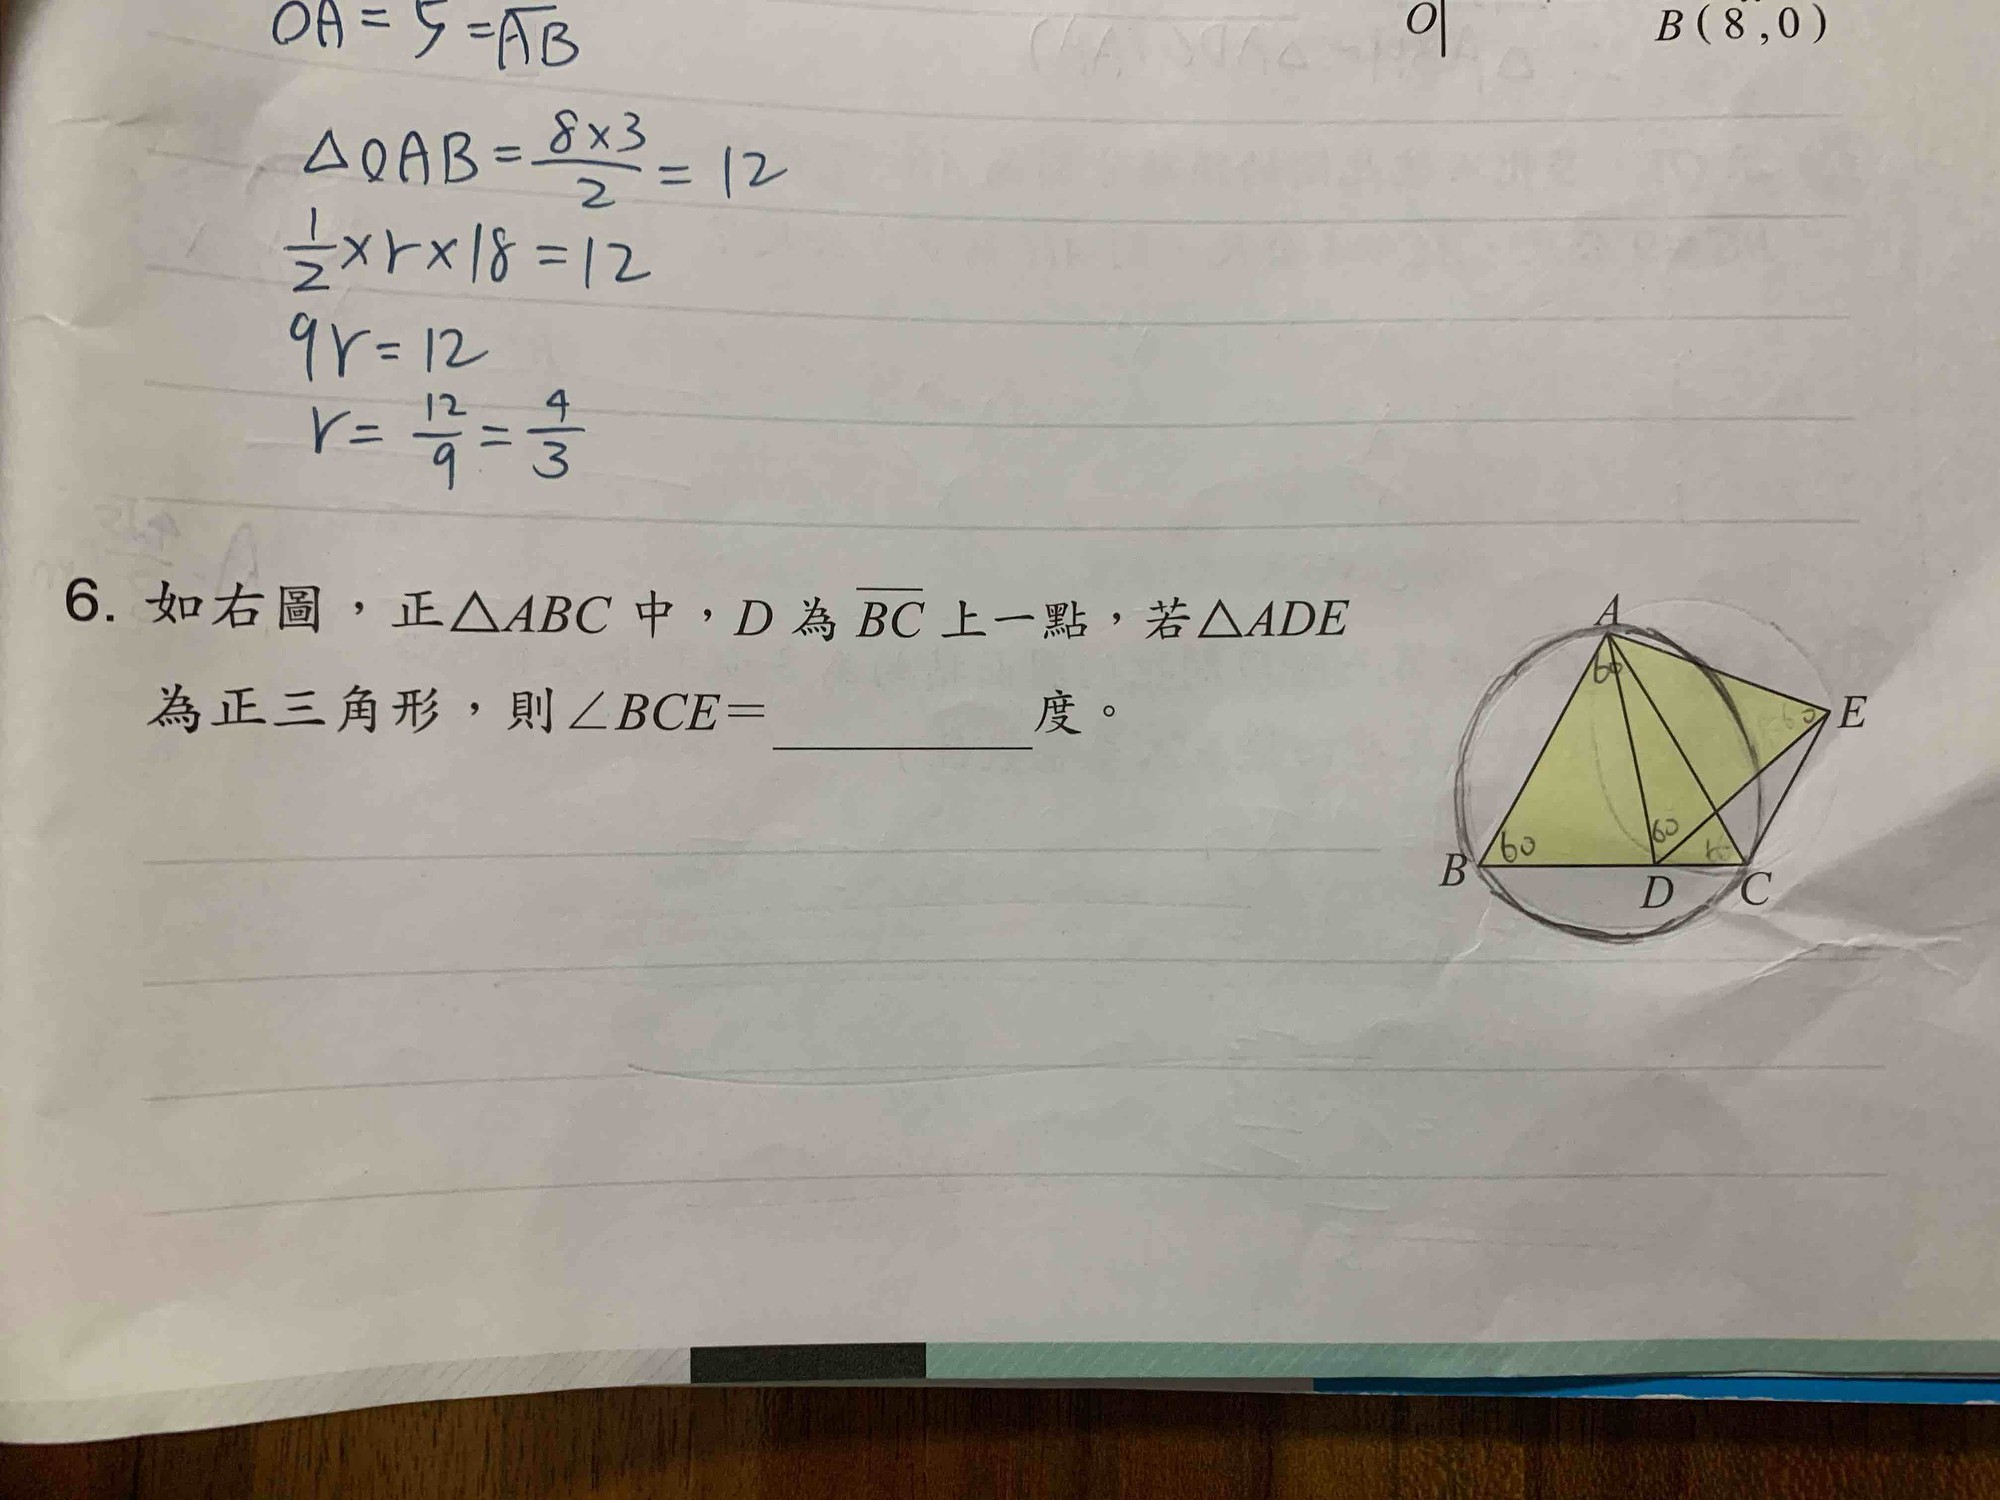 OA = 5 = AB
O
B(8,0)
△OAB = 8×3/2 = 12
1/2 × r × 18 = 12
9r = 12
r = 12/9 = 4/3
6. 如右圖，正△ABC 中，D 為 BC 上一點，若△ADE
為正三角形，則∠BCE=______度。
A
60
60
E
60
60
B
D
C